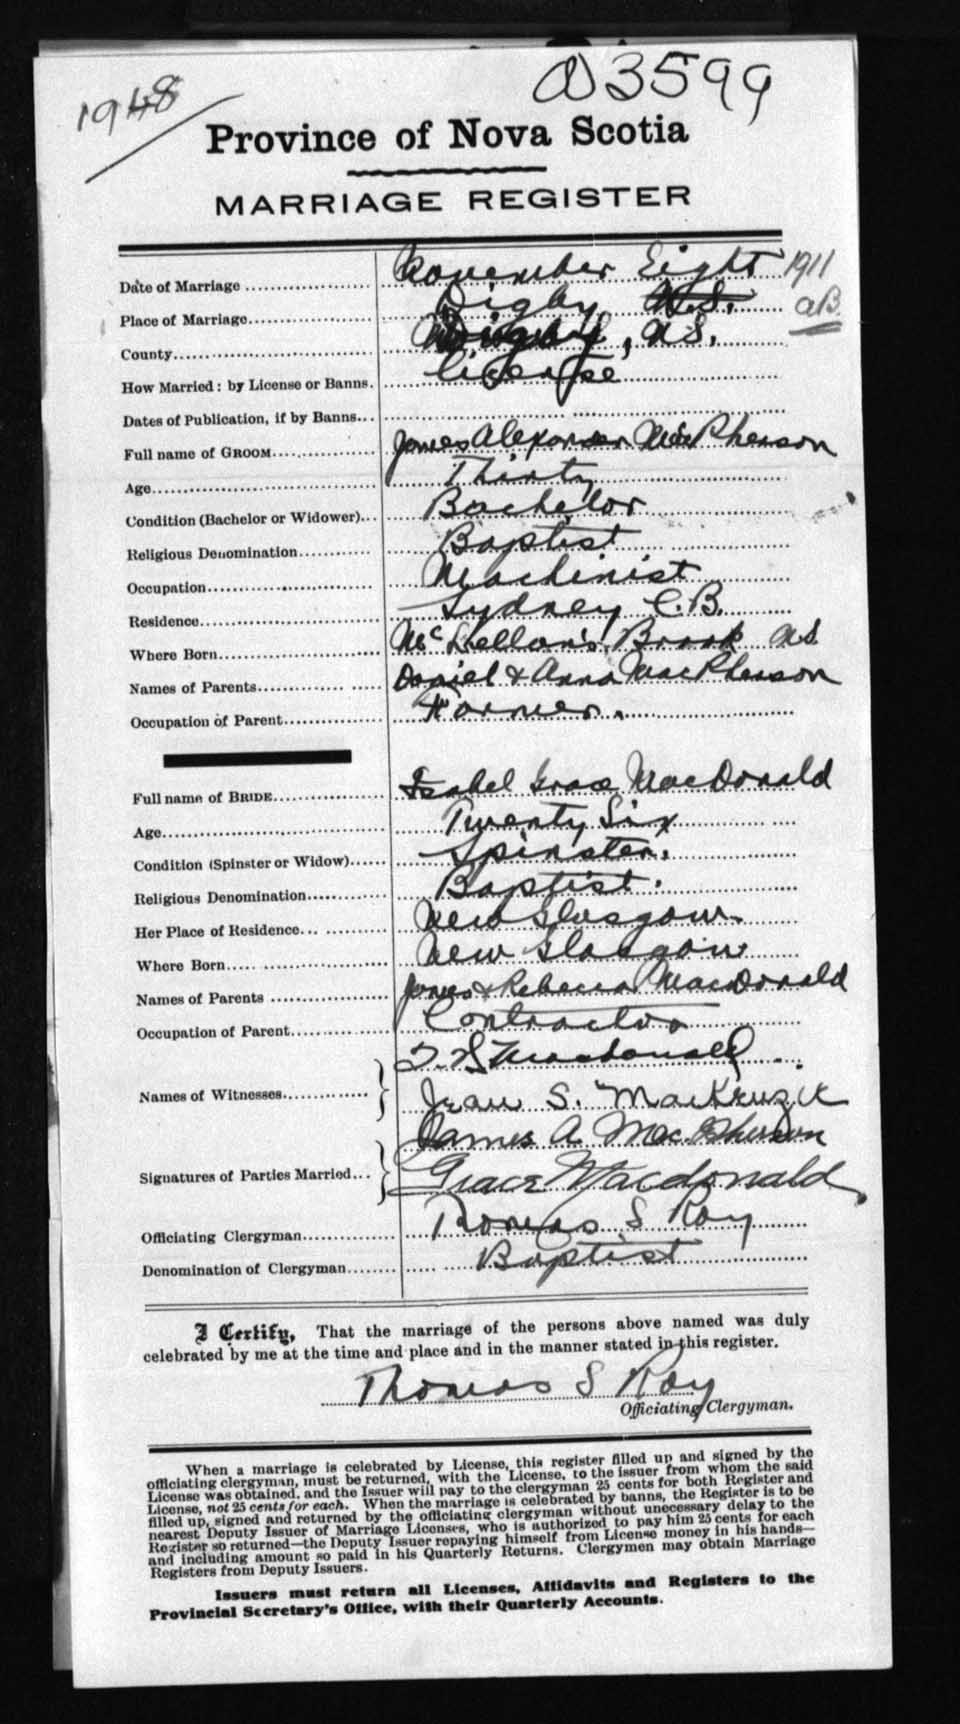 1948
A 3599
Province of Nova Scotia
MARRIAGE REGISTER
Date of Marriage November Eight 1911
Place of Marriage Digby N.S. AB.
County Digby, NS.
How Married: by License or Banns. License
Dates of Publication, if by Banns
Full name of GROOM James Alexander MacPherson
Age Thirty
Condition (Bachelor or Widower) Bachelor
Religious Denomination Baptist
Occupation Machinist
Residence Sydney C.B.
Where Born McLellan's Brook NS
Names of Parents Daniel & Anna MacPherson
Occupation of Parent Farmer.
Full name of BRIDE Isabel Grace MacDonald
Age Twenty Six
Condition (Spinster or Widow) Spinster.
Religious Denomination Baptist.
Her Place of Residence New Glasgow.
Where Born New Glasgow
Names of Parents James & Rebecca MacDonald
Occupation of Parent Contractor
Names of Witnesses Macdonald
Jean S. MacKenzie
Signatures of Parties Married James A MacPherson
Grace Macdonald
Officiating Clergyman Thomas S Roy
Denomination of Clergyman Baptist
I Certify, That the marriage of the persons above named was duly
celebrated by me at the time and place and in the manner stated in this register.
Thomas S Roy
Officiating Clergyman.
When a marriage is celebrated by License, this register filled up and signed by the
officiating clergyman, must be returned, with the License, to the issuer from whom the said
License was obtained, and the Issuer will pay to the clergyman 25 cents for both Register and
License, not 25 cents for each. When the marriage is celebrated by banns, the Register is to be
filled up, signed and returned by the officiating clergyman without unnecessary delay to the
nearest Deputy Issuer of Marriage Licenses, who is authorized to pay him 25 cents for each
Register so returned—the Deputy Issuer repaying himself from License money in his hands—
and including amount so paid in his Quarterly Returns. Clergymen may obtain Marriage
Registers from Deputy Issuers.
Issuers must return all Licenses, Affidavits and Registers to the
Provincial Secretary's Office, with their Quarterly Accounts.